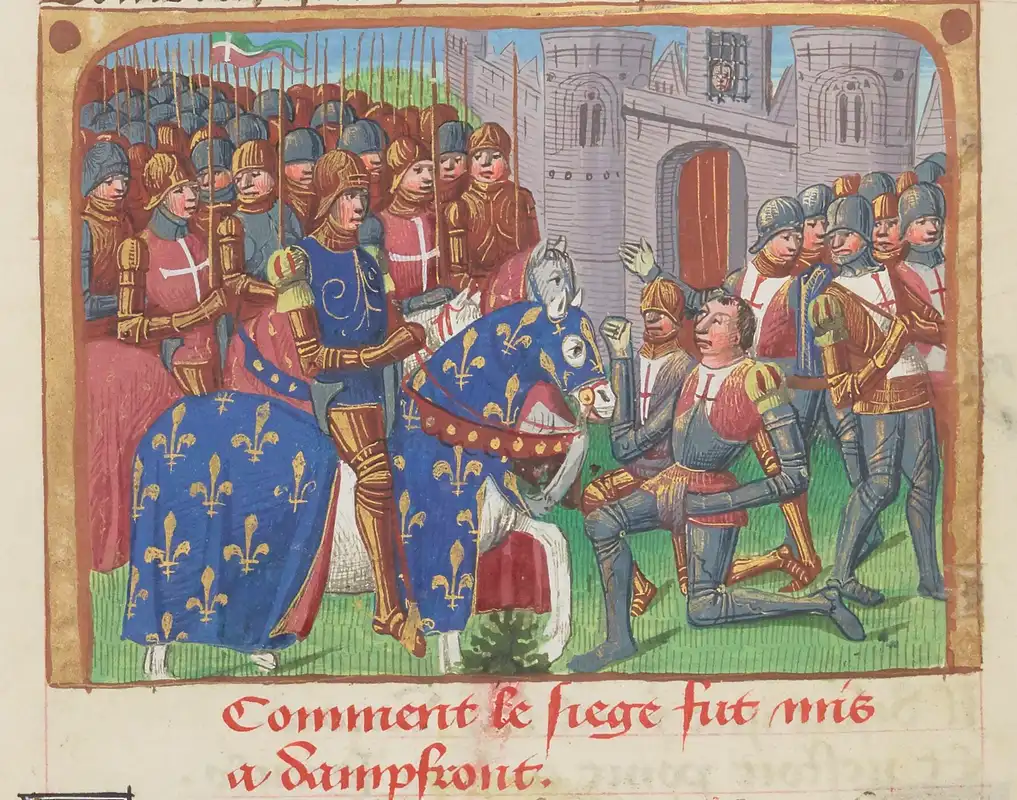 Comment le siege fut mis
a dampfront.